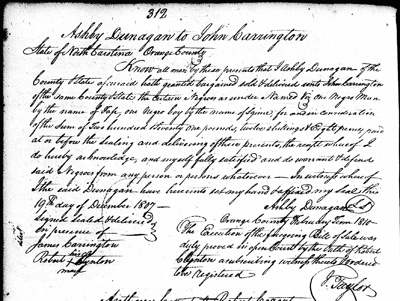 312
Ashby Dunagan to John Carrington
State of North Carolina Orange County
Know all men by these presents that I Ashby Dunagan of the
County & State aforesaid hath granted bargained sold & delivered unto John Carrington
of the same County & State the certain Negroes as under Named Viz one Negro Man
by the name of one Negro boy by the name of for and in consideration
of the Sum of two hundred & twenty one pounds, twelve shillings & Eight pence, paid
at or before the sealing and delivering of these presents, the receipt whereof I
do hereby acknowledge, and myself fully satisfied and do warrant & defend
said Negroes from any person or persons whatever — In witness whereof
I the said Dunagan have hereunto set my hand & affixed my Seal this
19th day of December 1807 —
Ashby Dunagan
Signed Sealed & delivered
in presence of
James Carrington
Robert Clynton
mark
Orange County Term 1810
The Execution of the foregoing Bill of Sale was
duly proved in open Court by the Oath of Robert
Clynton a subscribing witness thereto & ordered
to be registered
J. Taylor